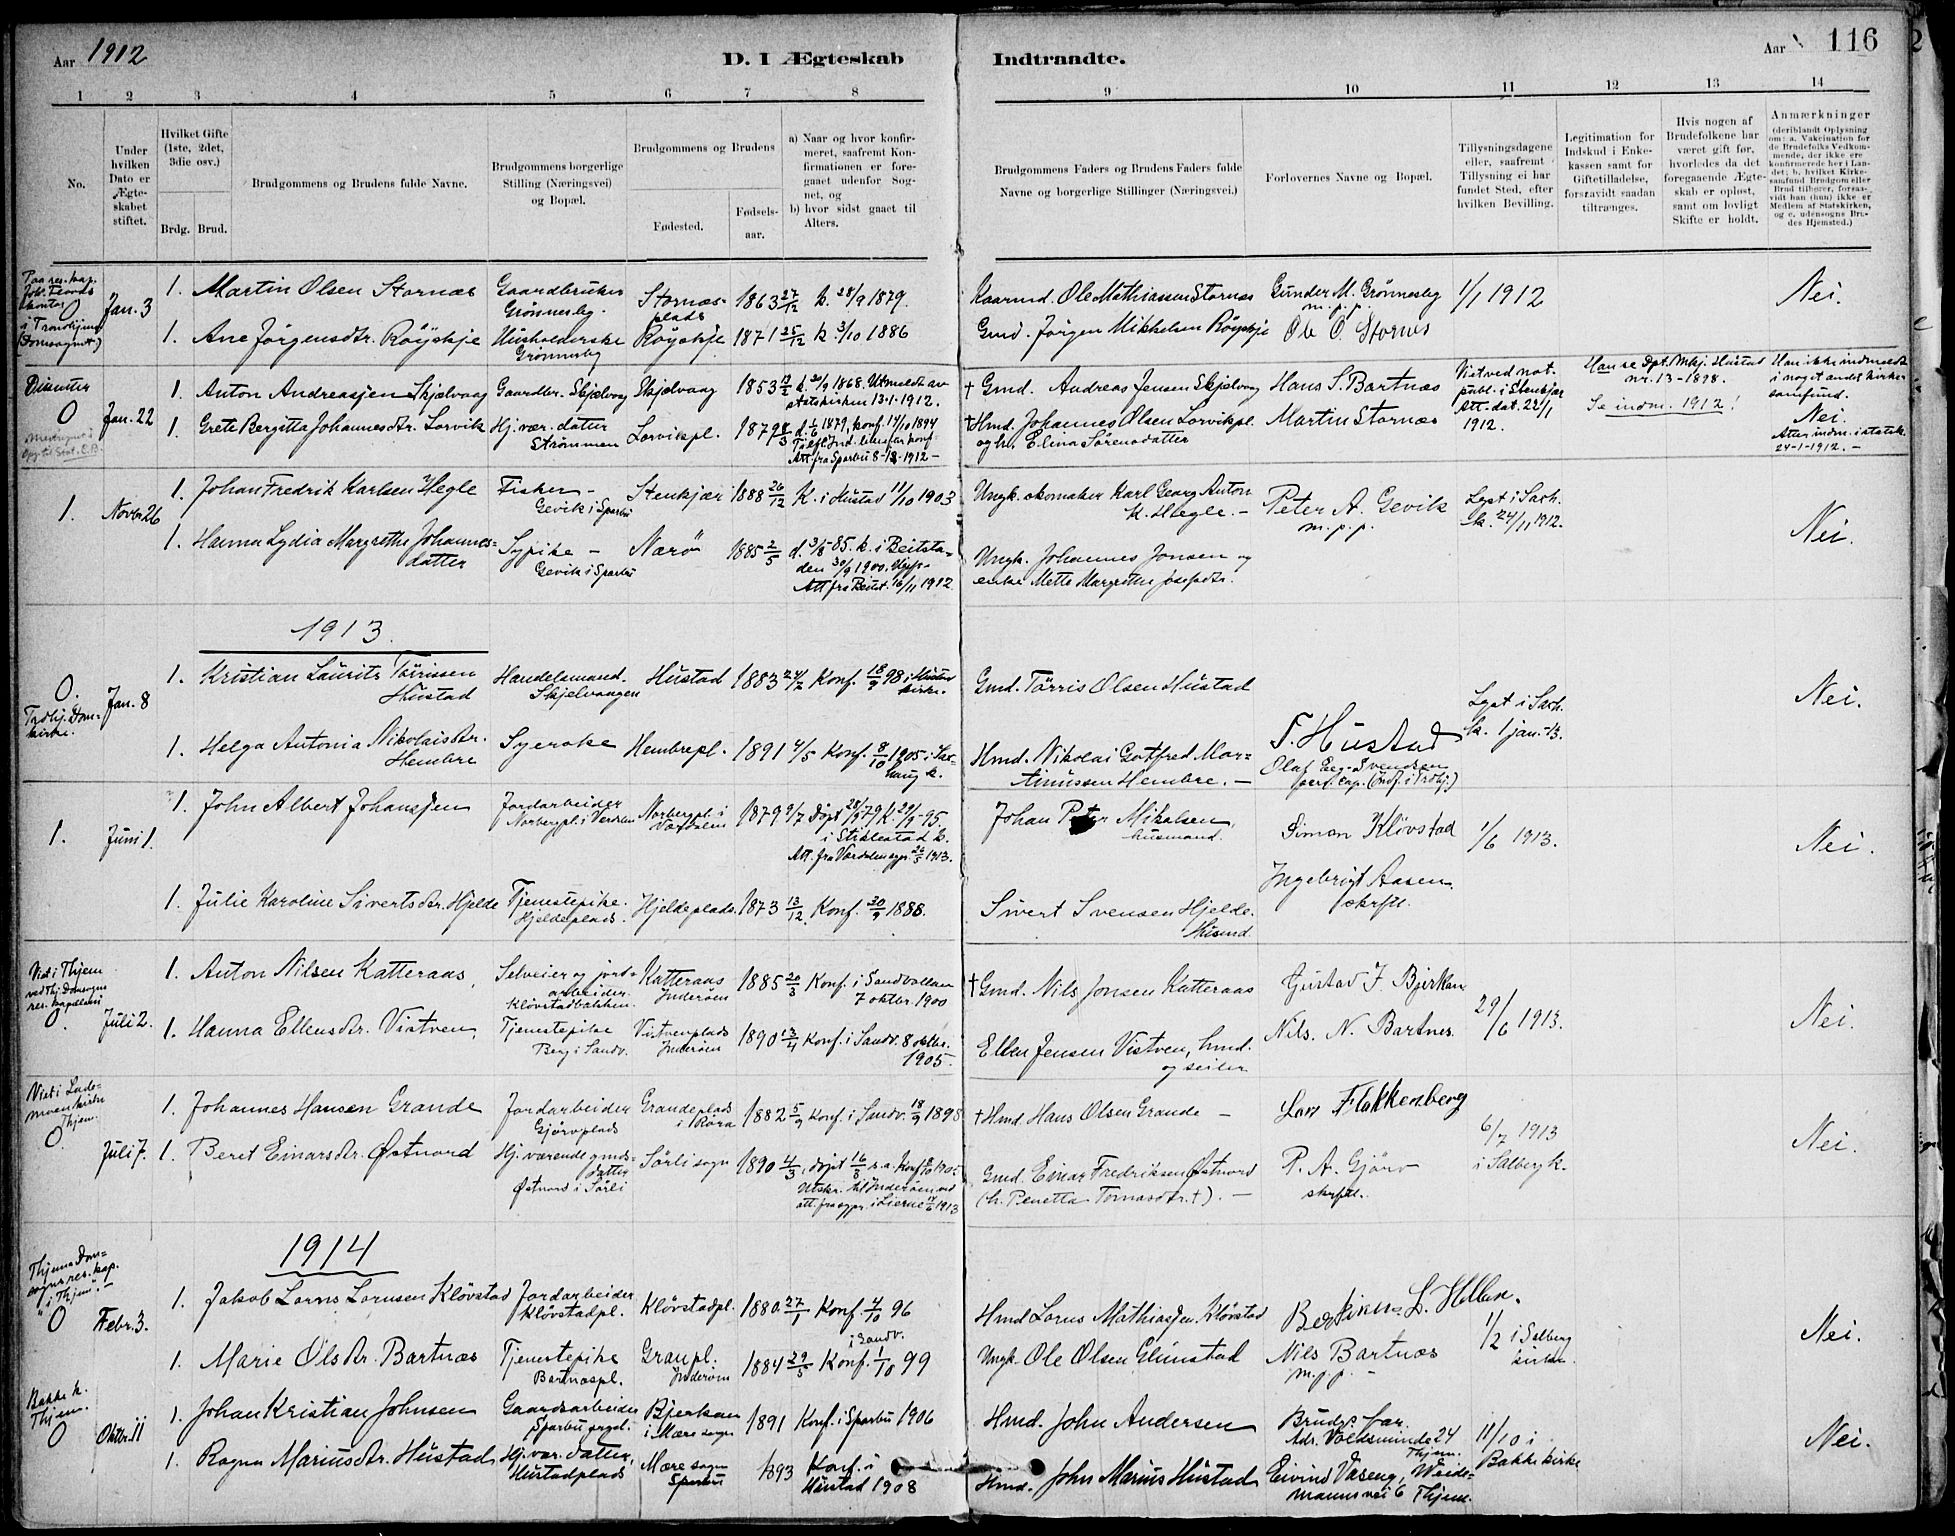 Aar 1912
D. I Ægteskab
Indtraadte.
Aar 116
1 2 3 4 5 6 7 8
9 10 11 12 13 14
No.
Under hvilken Dato er Ægteskabet stiftet.
Hvilket Gifte (1ste, 2det, 3die osv.)
Brdg. Brud.
Brudgommens og Brudens fulde Navne.
Brudgommens borgerlige Stilling (Næringsvei) og Bopæl.
Brudgommens og Brudens
Fødested. Fødselsaar.
a) Naar og hvor konfirmeret, saafremt Konfirmationen er foregaaet udenfor Sognet, og
b) hvor sidst gaaet til Alters.
Brudgommens Faders og Brudens Faders fulde Navne og borgerlige Stillinger (Næringsvei.)
Forlovernes Navne og Bopæl.
Tillysningsdagene eller, saafremt Tillysning ei har fundet Sted, efter hvilken Bevilling.
Legitimation for Indskud i Enkekassen samt for Giftetilladelse, forsaavidt saadan tiltrænges.
Hvis nogen af Brudefolkene har været gift før, hvorledes da det foregaaende Ægteskab er opløst, samt om lovligt Skifte er holdt.
Anmærkninger
(deriblandt Oplysning om: a. Vakcination for de Brudefolks Vedkommende, der ikke ere konfirmerede her i Landet; b. hvilket Kirkesamfund Brudgom eller Brud tilhører, forsaavidt han (hun) ikke er Medlem af Statskirken, og c. udensogns Brudes Hjemsted.)
0 Jan. 3
1. Martin Olsen Stornæs Gaardbruker Grønnesby. Stornæsplads 1863 27/12 k. 28/9 1879. Kaarmd. Ole Mathiassen Stornæs Gunder M. Grønnesby m.p.p. 1/1 1912 Nei.
1. Ane Jörgensdtr. Röyskje Husholderske Grønnesby Röyskje 1871 25/12 k. 3/10 1886 Gmd. Jörgen Mikkelsen Röyskje Ole O. Stornes
Dissenter 0 Jan. 22
1. Anton Andreassen Skjelvaag Gaardbr. Skjelvaag Skjelvaag 1853 Utmeldt av statskirken 13-1-1912. † Gmd. Andreas Jensen Skjelvaag Hans S. Bartnæs
Viet ved not. publ. i Stenkjær Att. dat. 22/1 1912. Han se Dpt. Mkj. Hustad nr. 13-1898. Se indm. 1912! Han ikke indmeldt i noget andet kirkesamfund. Nei.
1. Grete Bergitta Johannesdtr. Lorvik Hj. vær. datter Strömmen Lorvikpl. 1879 konf. 14/10 1894 Att. fra Sparbu 1912 † Hmd. Johannes Olsen Lorvikpl. og h. Elina Sörensdatter Martin Stornæs
Atter indm. i statsk. 24-1-1912.
1. Novbr 26
1. Johan Fredrik Karlsen Hegle Fisker – Gevik i Sparbu Stenkjær 1888 26/12 K. i Hustad 11/10 1903 Ungk. skomaker Karl Georg Anton K. Hegle. – Peter A. Gevik m.p.p. Lyst i Sach. k. 24/11 1912. Nei.
1. Hanna Lydia Margrethe Johannesdatter Sypike – Gevik i Sparbu Nærö 1885 2/5 k. i Beitstaden 30/9 1900. Att fra Beitst. 16/11 1912. Ungk. Johannes Jonsen og enke Mette Margrethe Josefsdtr.
1913.
0. Trdhj. Domkirke. Jan. 8
1. Kristian Laurits Törrissen Hustad Handelsmand. Skjelvaagen Hustad 1883 24/2 Konf. 18/9 98 i Hustad kirke. Gmd. Törris Olsen Hustad T. Hustad Lyst i Sach. k. 1 jan. -13. Nei.
1. Helga Antonia Nikolaisdtr. Hembre Syerske Hembrepl. 1891 4/5 Konf. 8/10 1905 i Sachaug k. Hmd. Nikolai Gotfred Martinussen Hembre. – Olaf Eeg-Svendsen
1. Juni 1.
1. John Albert Johanssen Jordarbeider Norbergpl. i Verdalen Norbergpl. i Værdalen 1879 9/7 Döpt 28/9 79 K. 29/9 -95. i Stiklestad k. Att. fra Værdalen 26/5 1913. Johan Peter Mikalsen, husmand. Simon Klövstad 1/6 1913. Nei.
1. Julie Karoline Sivertsdtr. Hjelde Tjenestepike. Hjeldeplads. Hjeldeplads. 1873 13/12. Konf. 30/9 1888. Sivert Svensen Hjelde. Husmd. Ingebrigt Aasen. skrftl.
0. Juli 2.
1. Anton Nilsen Katteraas, Selveier og jordarbeider Klövstadbakken. Katteraas Inderöen 1885 20/3 Konf. i Sandvollan 7 oktbr. 1900 † Gmd. Nils Jonsen Katteraas Gustav J. Bjerkan 29/6 1913. Nei.
1. Hanna Ellensdtr. Vistven, Tjenestepike Berg i Sandv. Vistvenplads Inderöen 1890 13/4 Konf. i Sandv. 8 oktbr. 1905 – Ellen Jensen Vistven, hmd. og seiler Nils. N. Bartnes
Viet i Lademoen kirke Thjem. 0 Juli 7.
1. Johannes Hansen Grande Jordarbeider Gjörvplads Grandeplads i Röra 1882 5/9 Konf. i Sandv. 18/9 1898 † Hmd. Hans Olsen Grande – Lars Flakkenberg 6/7 1913 i Salberg k. Nei.
1. Beret Einarsdtr. Østnord Hj. værende gmds. datter Østnord i Sörli Sörli sogn 1890 4/3, döpt 16/3 s.a. Utskr. til Inderöen ved att. fra sgpr. i Lierne 1913 Gmd. Einar Fredriksen Østnord (h. Penetta Tomasdtr. †). – P. A. Gjörv skrftl.
1914
0 Febr. 3.
1. Jakob Lorns Lornsen Klövstad Jordarbeider Klövstadpl. Klövstadpl. 1880 27/1 Konf. 4/10 96 i Sandv. Hmd Lorns Mathiassen Klövstad Bertinus L. Hellan. 1/2 i Salberg kirke. Nei.
1. Marie Olsdtr. Bartnæs Tjenestepike Bartnæspl. Granpl. Inderöen 1884 29/5 Konf. 1/10 99 Ungk. Ole Olsen Glimstad Nils Bartnæs m.p.p. –
Bakke k. Thjem. 0 Oktbr. 11
1. Johan Kristian Johnsen Gaardsarbeider Bjerkan i Mære sogn 1891 Konf. i Sparbu 1906 Hmd. John Andersen Brudg.s far. Adr. Voldsminde 24 Thjem. 11/10 i Bakke kirke Nei.
1. Ragna Mariusdtr. Hustad Hj. vær. datter, Hustadplads Mære sogn Sparbu 1893 Konf. i Hustad 1908 Hmd. John Marius Hustad Eivind Vaseng, Weidemannsvei 6 Thjem.